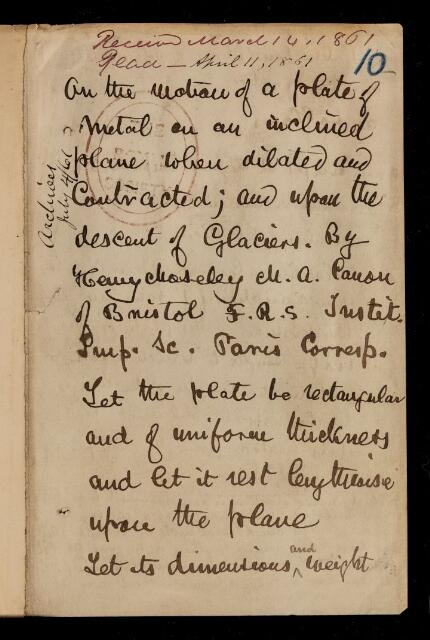 Received March 14, 1861
Read — April 11, 1861
10
Archives
July 4/61
On the motion of a plate of
metal on an inclined
plane when dilated and
Contracted; and upon the
descent of Glaciers. By
Henry Moseley M. A. Canon
of Bristol F.R.S. Instit.
Imp. Sc. Paris Corresp.
Let the plate be rectangular
and of uniform thickness
and let it rest lengthwise
upon the plane
Let its dimensions and weight